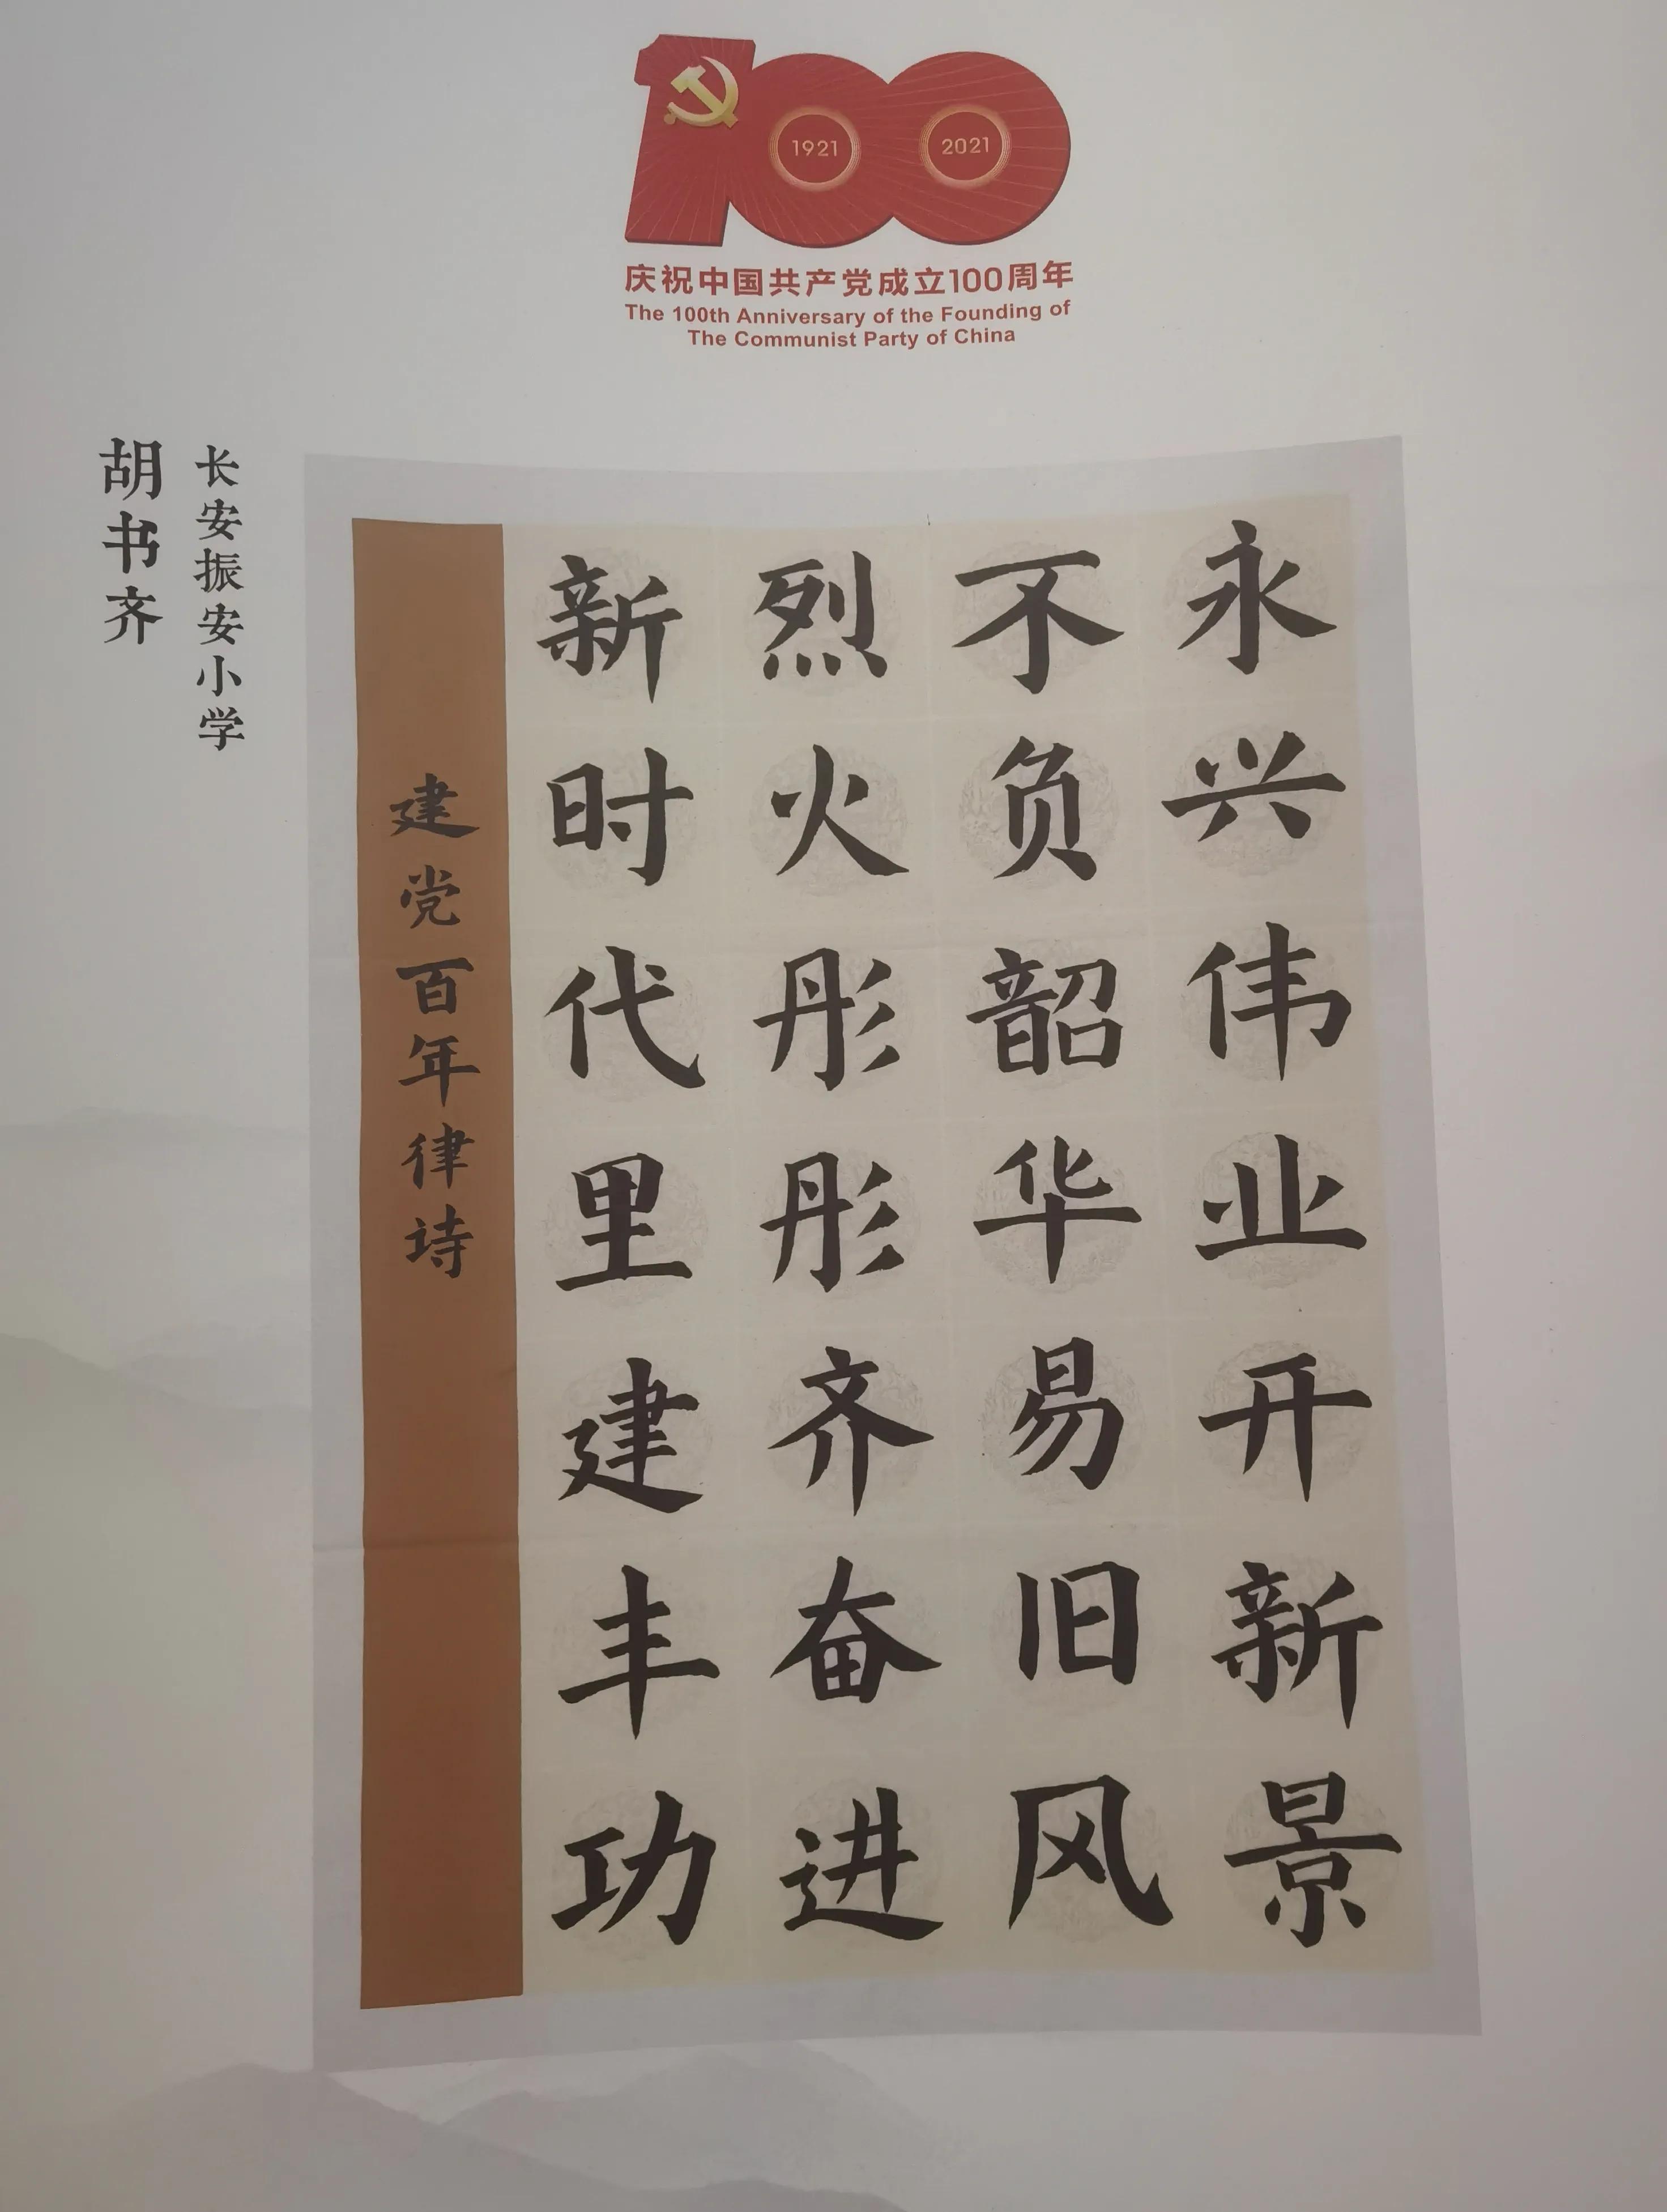 1921
2021
庆祝中国共产党成立100周年
The 100th Anniversary of the Founding of
The Communist Party of China
永兴伟业开新景
不负韶华易旧风
烈火彤彤齐奋进
新时代里建丰功
建党百年律诗
长安振安小学
胡书齐